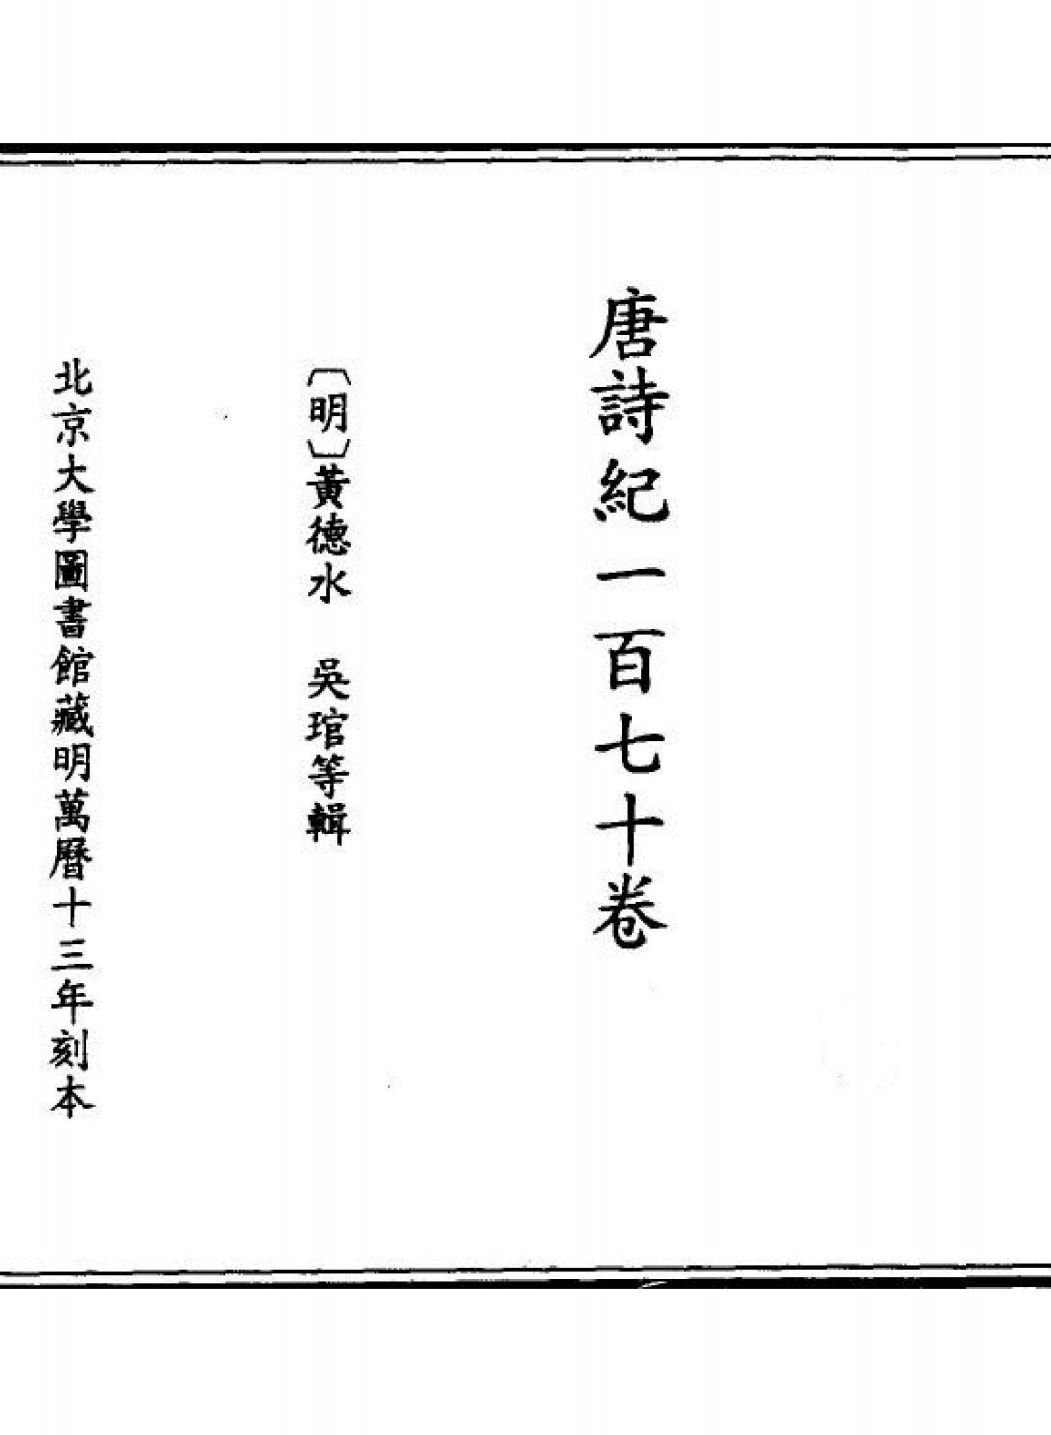 唐詩紀一百七十卷
〔明〕黃德水　吳琯等輯
北京大學圖書館藏明萬曆十三年刻本